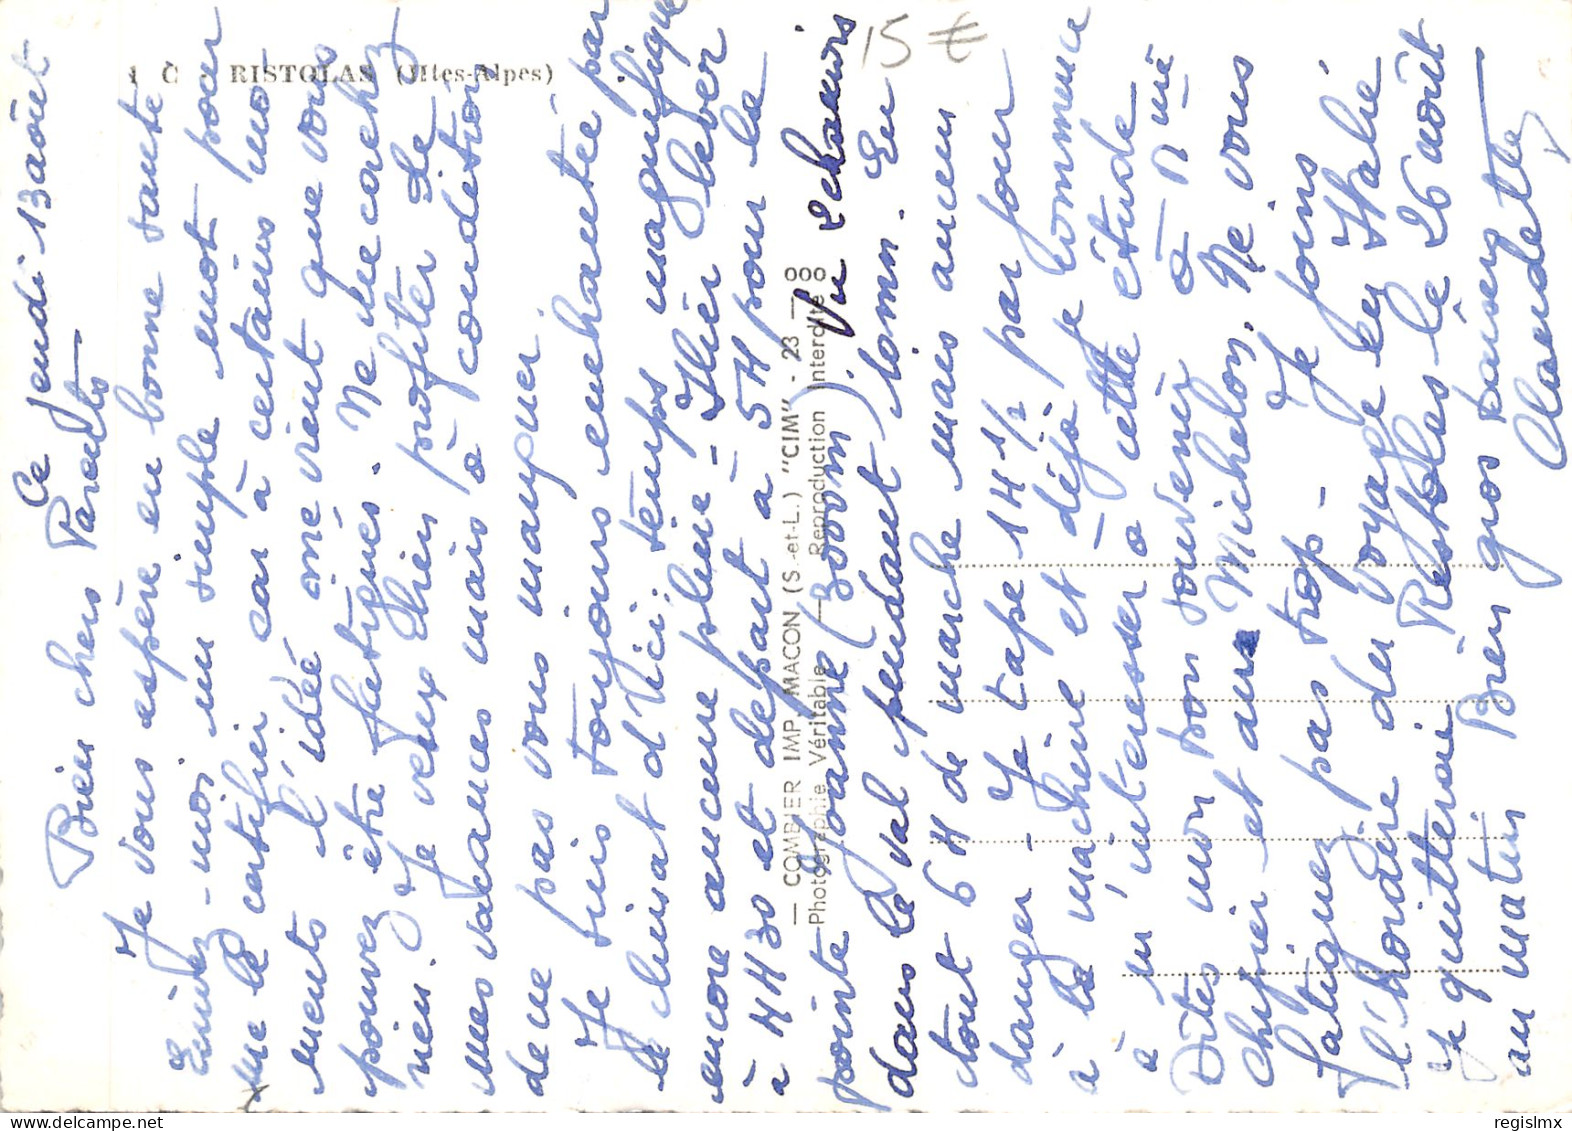 Ce jeudi 13 août
Bien chers Parents
Je vous espère en bonne santé
Ecrivez-moi un simple mot pour
me le certifier car à certains mo
ments l'idée me vient que vous
pouvez être fatigués. Ne me cachez
rien. Je veux bien profiter de
mes vacances mais à condition
de ne pas vous manquer.
Je suis toujours enchantée par
le climat d'ici. temps magnifique
encore aucune pluie - Hier lever
à 4H30 et départ à 5H pour la
pointe Joanne (3000m). Vu 2 chamois
dans le val pendant 10mn. En
tout 6H de marche mais aucun
danger - Je tape 1H 1/2 par jour
à la machine et déjà je commence
à m'intéresser à cette étude
Dites mon bon souvenir à Mme
Chypier et aux Michelon. Ne vous
fatiguez pas trop - Je joins
l'horaire du voyage en Italie
Je quitterai Ristolas le 26 août
au matin Bien gros baisers
Claudette
RISTOLAS (Htes-Alpes)
— COMBIER IMP. MACON (S.-et-L.) "CIM" - 23 —
Photographie Véritable — Reproduction Interdite
15 €
regislmx